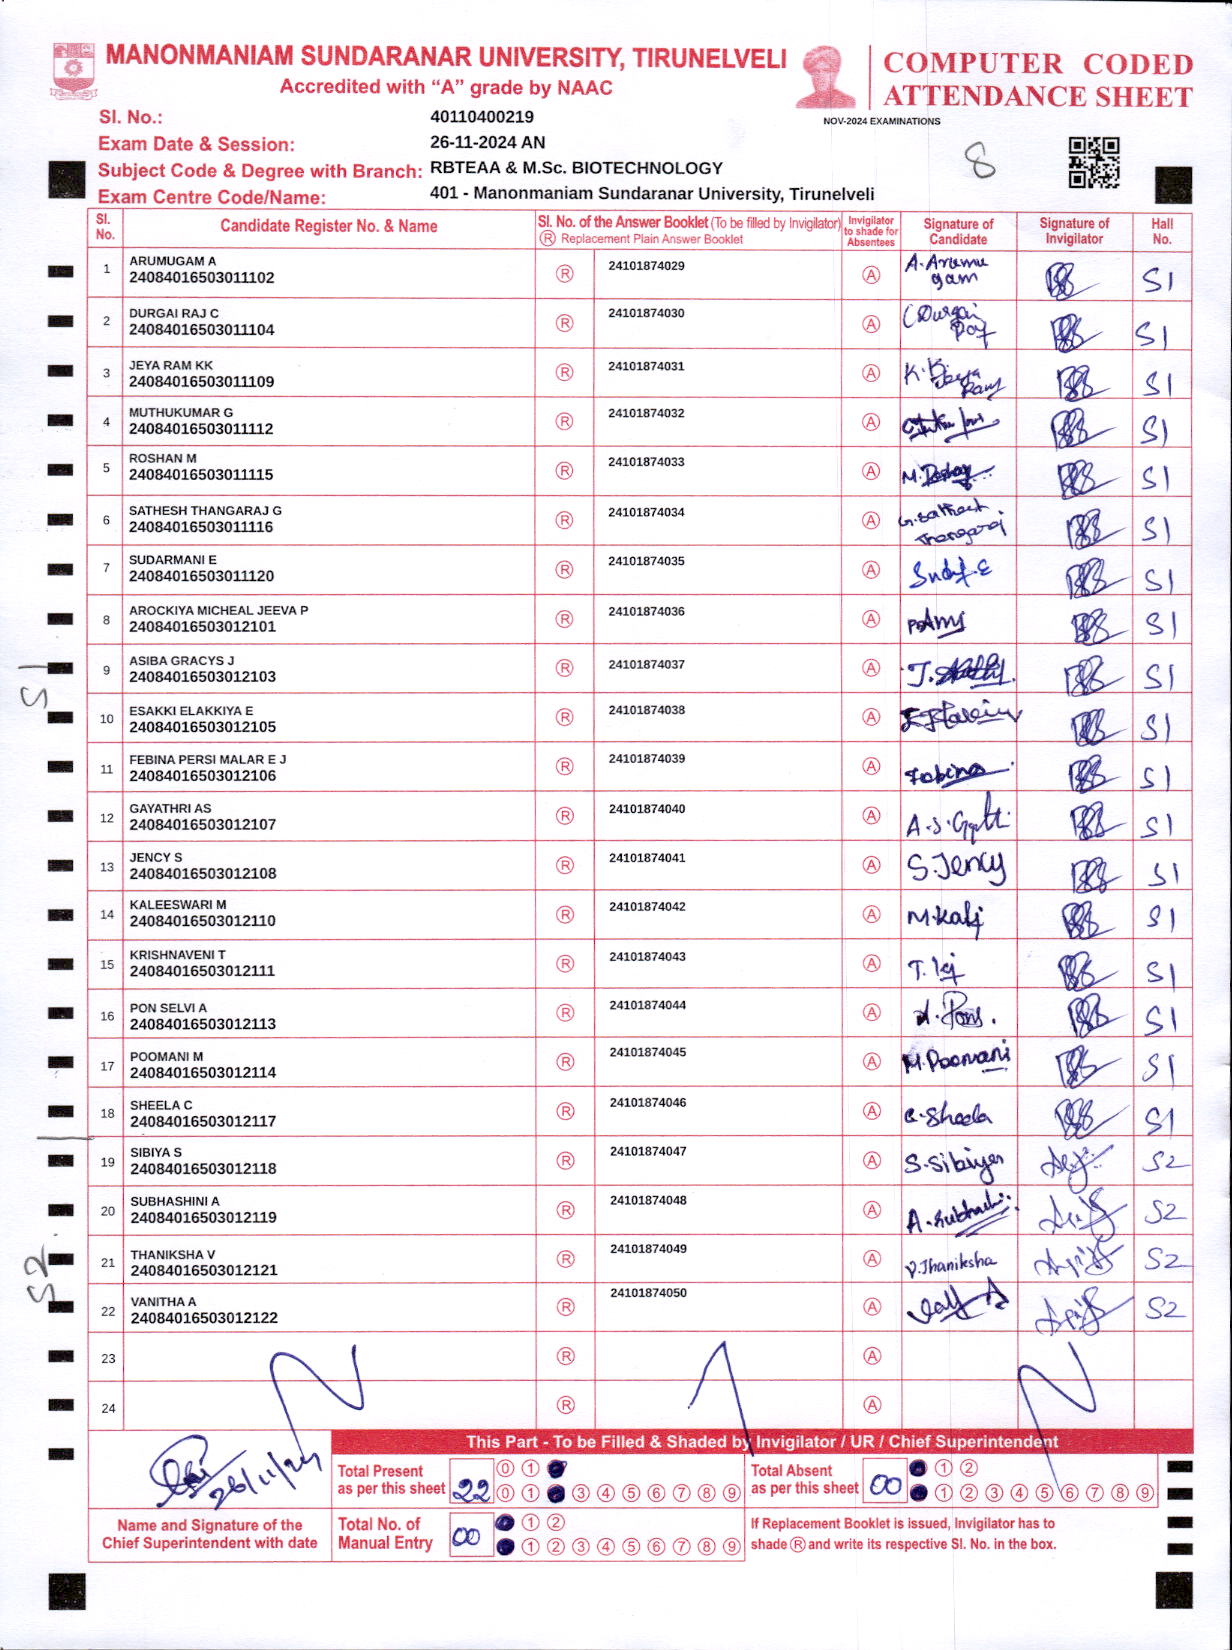 MANONMANIAM SUNDARANAR UNIVERSITY, TIRUNELVELI
Accredited with “A” grade by NAAC
COMPUTER CODED
ATTENDANCE SHEET
NOV-2024 EXAMINATIONS
Sl. No.: 40110400219
Exam Date & Session: 26-11-2024 AN
Subject Code & Degree with Branch: RBTEAA & M.Sc. BIOTECHNOLOGY
Exam Centre Code/Name: 401 - Manonmaniam Sundaranar University, Tirunelveli
8
Sl. No. Candidate Register No. & Name Sl. No. of the Answer Booklet (To be filled by Invigilator) Ⓡ Replacement Plain Answer Booklet Invigilator to shade for Absentees Signature of Candidate Signature of Invigilator Hall No.
1 ARUMUGAM A Ⓡ 24101874029 Ⓐ A. Arumu gam S1
24084016503011102
2 DURGAI RAJ C Ⓡ 24101874030 Ⓐ C Durgai Raj S1
24084016503011104
3 JEYA RAM KK Ⓡ 24101874031 Ⓐ S1
24084016503011109
4 MUTHUKUMAR G Ⓡ 24101874032 Ⓐ S1
24084016503011112
5 ROSHAN M Ⓡ 24101874033 Ⓐ S1
24084016503011115
6 SATHESH THANGARAJ G Ⓡ 24101874034 Ⓐ G. Sathesh Thangaraj S1
24084016503011116
7 SUDARMANI E Ⓡ 24101874035 Ⓐ S1
24084016503011120
8 AROCKIYA MICHEAL JEEVA P Ⓡ 24101874036 Ⓐ S1
24084016503012101
9 ASIBA GRACYS J Ⓡ 24101874037 Ⓐ S1
24084016503012103
10 ESAKKI ELAKKIYA E Ⓡ 24101874038 Ⓐ S1
24084016503012105
11 FEBINA PERSI MALAR E J Ⓡ 24101874039 Ⓐ Febina S1
24084016503012106
12 GAYATHRI AS Ⓡ 24101874040 Ⓐ S1
24084016503012107
13 JENCY S Ⓡ 24101874041 Ⓐ S. Jency S1
24084016503012108
14 KALEESWARI M Ⓡ 24101874042 Ⓐ S1
24084016503012110
15 KRISHNAVENI T Ⓡ 24101874043 Ⓐ S1
24084016503012111
16 PON SELVI A Ⓡ 24101874044 Ⓐ S1
24084016503012113
17 POOMANI M Ⓡ 24101874045 Ⓐ M. Poomani S1
24084016503012114
18 SHEELA C Ⓡ 24101874046 Ⓐ C. Sheela S1
24084016503012117
19 SIBIYA S Ⓡ 24101874047 Ⓐ S. Sibiya S2
24084016503012118
20 SUBHASHINI A Ⓡ 24101874048 Ⓐ S2
24084016503012119
21 THANIKSHA V Ⓡ 24101874049 Ⓐ V. Thaniksha S2
24084016503012121
22 VANITHA A Ⓡ 24101874050 Ⓐ S2
24084016503012122
23 Ⓡ Ⓐ
24 Ⓡ Ⓐ
S1
S2
This Part - To be Filled & Shaded by Invigilator / UR / Chief Superintendent
26/11/24
Name and Signature of the
Chief Superintendent with date
Total Present ⓪ ①
as per this sheet 22 ⓪ ① ③ ④ ⑤ ⑥ ⑦ ⑧ ⑨
Total Absent ① ②
as per this sheet 00 ① ② ③ ④ ⑤ ⑥ ⑦ ⑧ ⑨
Total No. of ① ②
Manual Entry 00 ① ② ③ ④ ⑤ ⑥ ⑦ ⑧ ⑨
If Replacement Booklet is issued, Invigilator has to
shade Ⓡ and write its respective Sl. No. in the box.